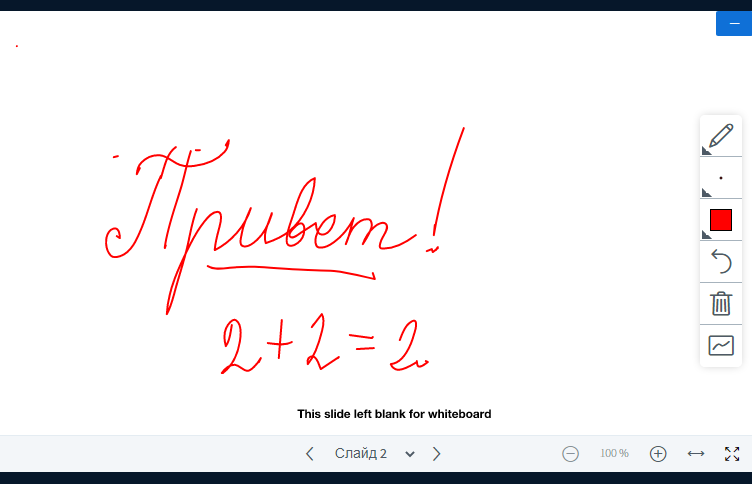 Привет!
2+2=2
This slide left blank for whiteboard
Слайд 2
100 %